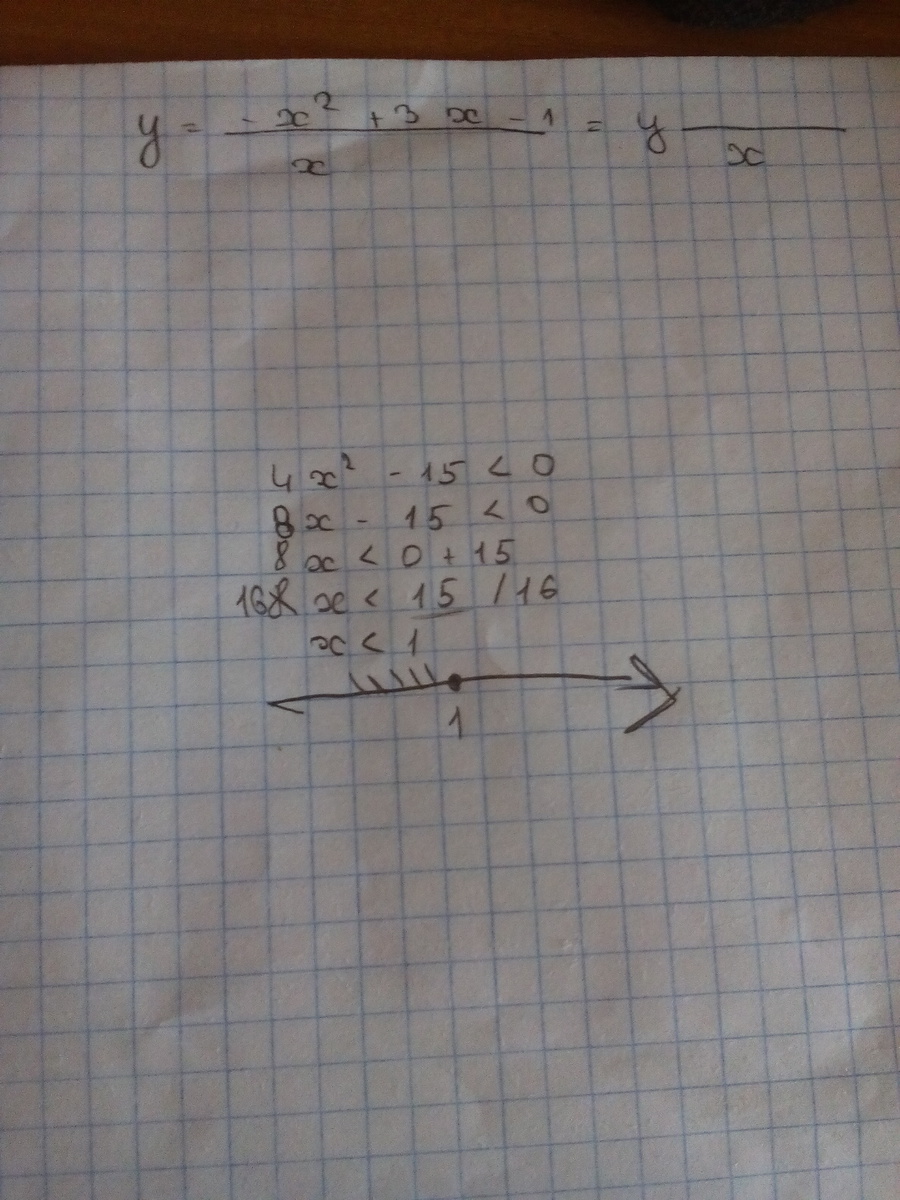 y = (- x² + 3 x - 1) / x = y — / x
4 x² - 15 < 0
8x - 15 < 0
8x < 0 + 15
16 x < 15 / 16
x < 1
1